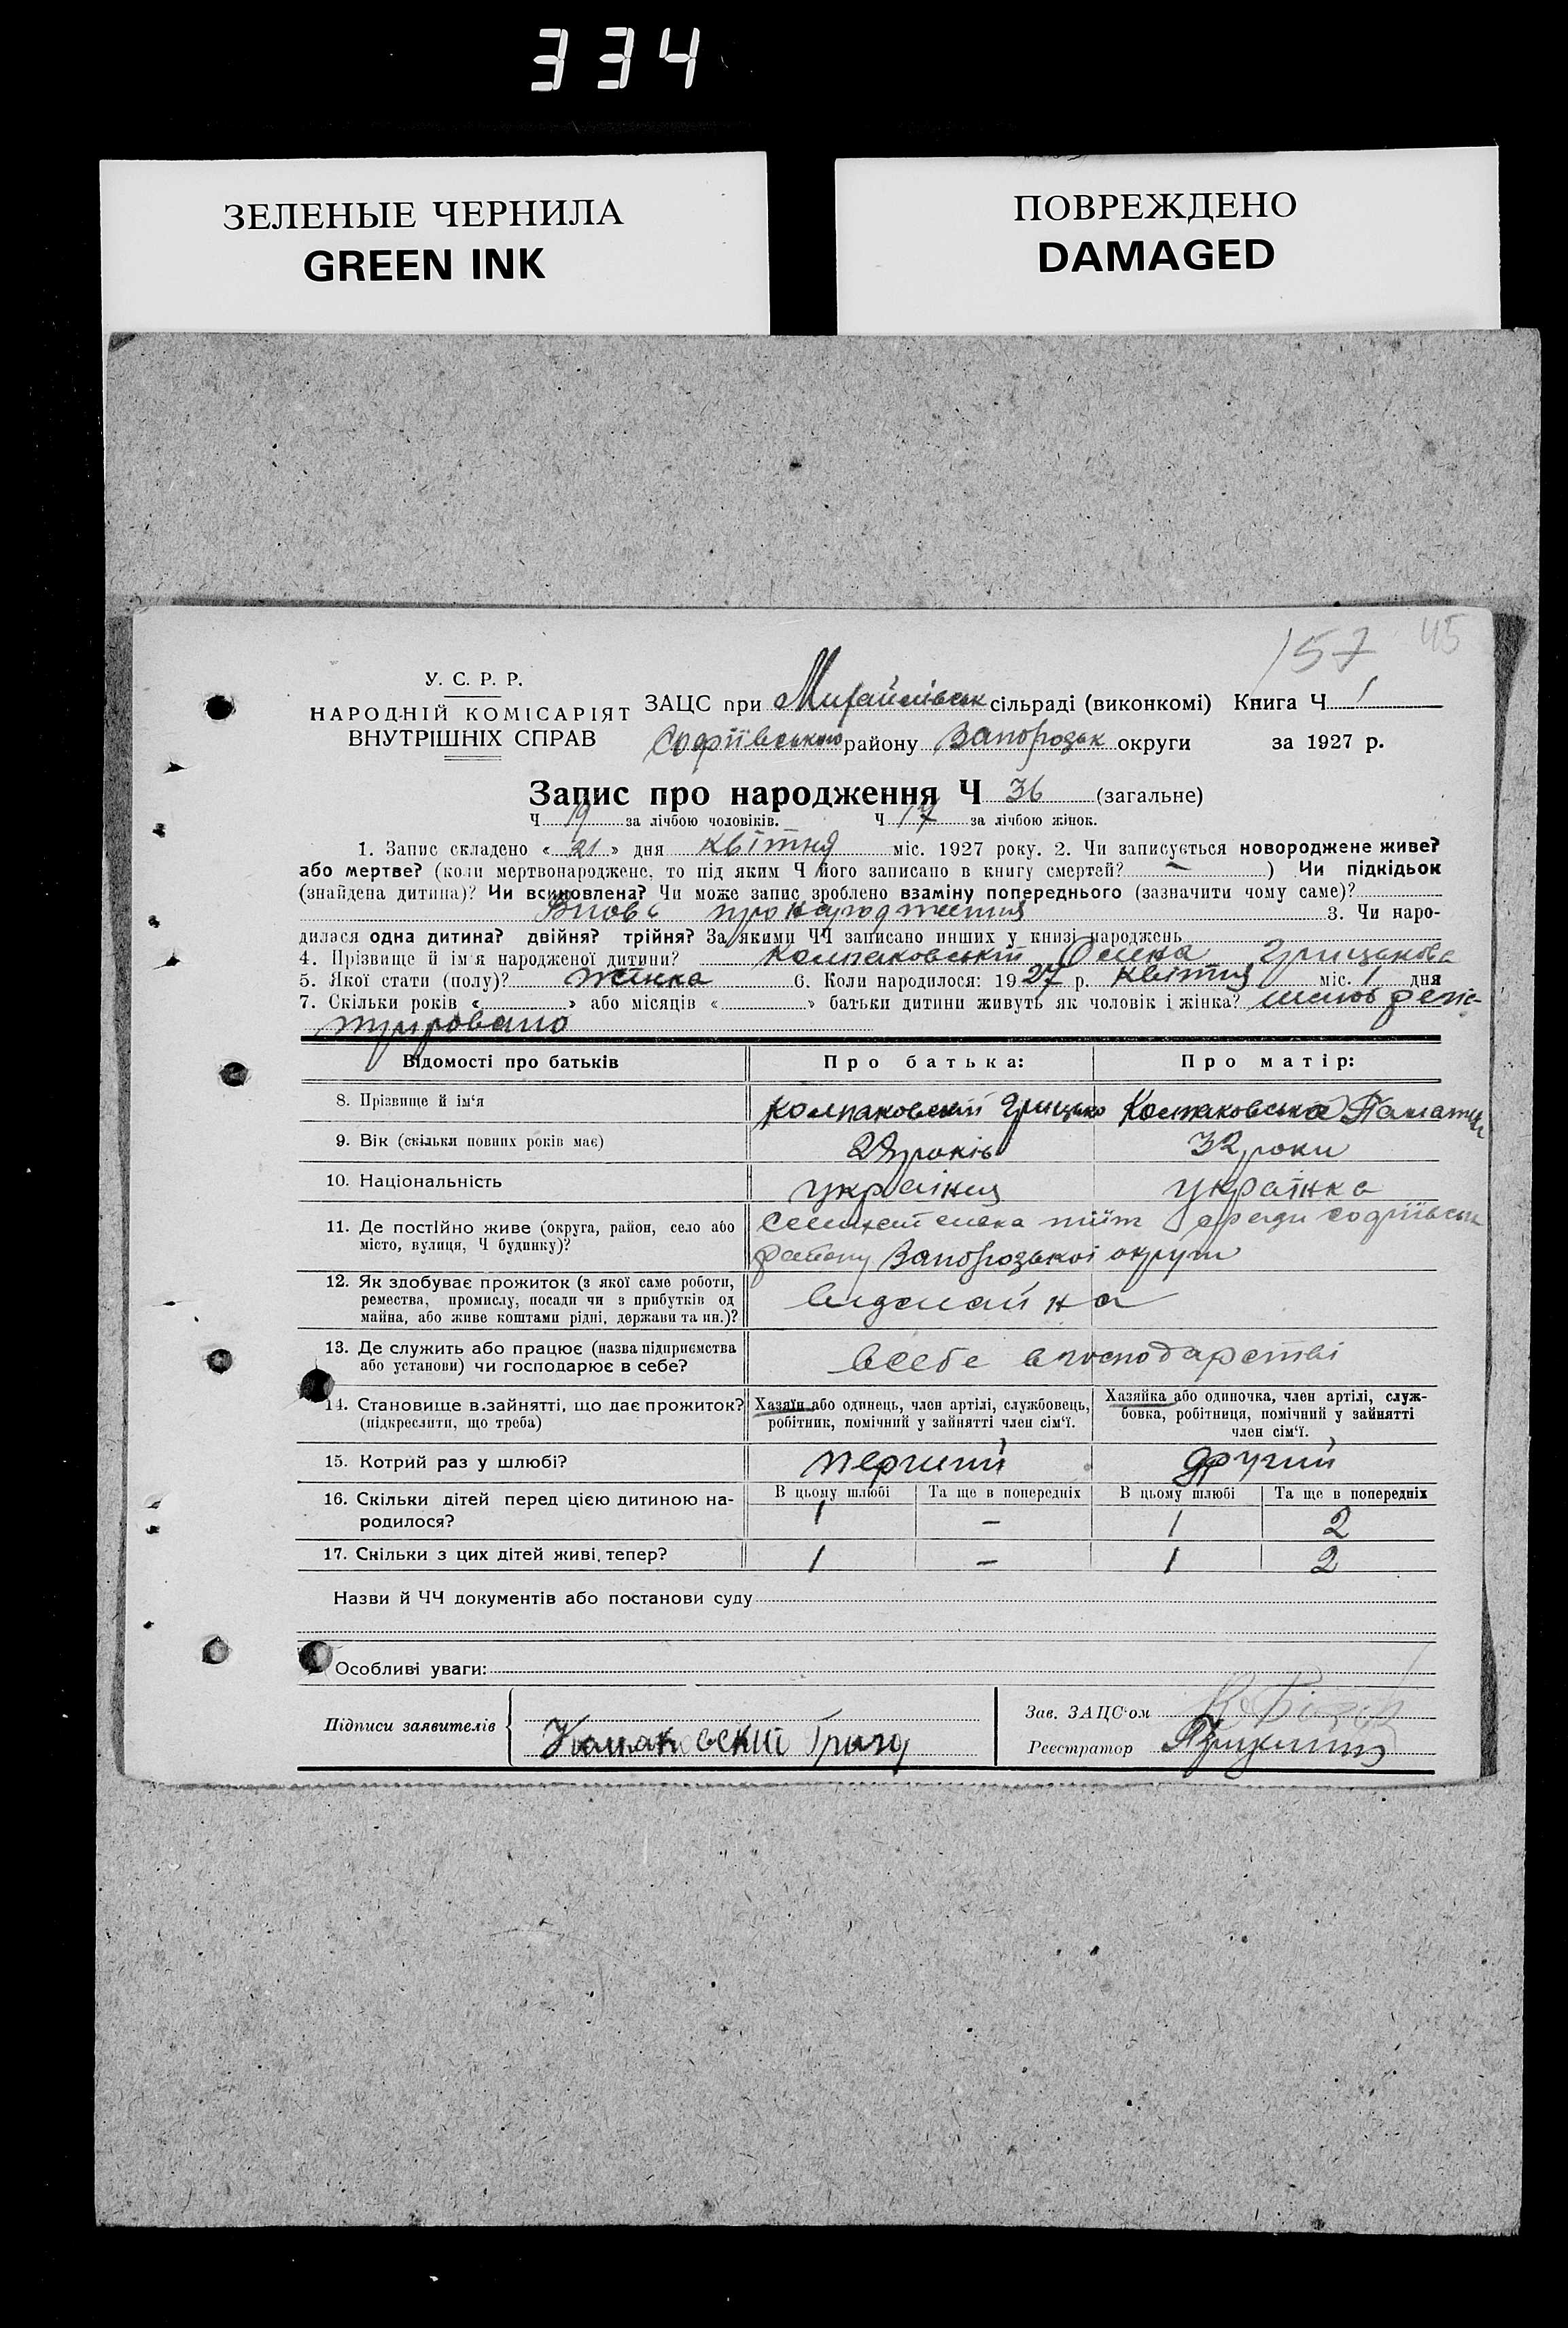 334
ЗЕЛЕНЫЕ ЧЕРНИЛА
GREEN INK
ПОВРЕЖДЕНО
DAMAGED
157 45
У. С. Р. Р.
НАРОДНІЙ КОМІСАРІЯТ
ВНУТРІШНІХ СПРАВ
ЗАЦС при Михайлівськ сільраді (виконкомі) Книга Ч 1
Софіївського району Запорозьк округи за 1927 р.
Запис про народження Ч 36 (загальне)
Ч 19 за лічбою чоловіків. Ч 17 за лічбою жінок.
1. Запис складено « 21 » дня квітня міс. 1927 року. 2. Чи записується новороджене живе?
або мертве? (коли мертвонароджене, то під яким Ч його записано в книгу смертей? — ) Чи підкідьок
(знайдена дитина)? Чи всиновлена? Чи може запис зроблено взаміну попереднього (зазначити чому саме)?
про народження 3. Чи наро-
дилася одна дитина? двійня? трійня? За якими ЧЧ записано инших у книзі народжень
4. Прізвище й ім'я народженої дитини? Колпаковській Олена Грицькова
5. Якої стати (полу)? жінка 6. Коли народилося: 1927 р. квітня міс. 1 дня
7. Скільки років « » або місяців « » батьки дитини живуть як чоловік і жінка? шлюб регіс-
трировано
Відомості про батьків Про батька: Про матір:
8. Прізвище й ім'я Колпаковський Грицько Колпаковська
9. Вік (скільки повних років має) років 32 роки
10. Національність українец українка
11. Де постійно живе (округа, район, село або
місто, вулиця, Ч будинку)? Софіївськ
району Запорозької округи
12. Як здобуває прожиток (з якої саме роботи,
ремества, промислу, посади чи з прибутків од
майна, або живе коштами рідні, держави та ин.)?
13. Де служить або працює (назва підприємства
або установи) чи господарює в себе? всебе в господарстві
14. Становище в зайнятті, що дає прожиток?
(підкреслити, що треба)
Хазяїн або одинець, член артілі, службовець,
робітник, помічний у зайнятті член сім'ї.
Хазяйка або одиночка, член артілі, служ-
бовка, робітниця, помічний у зайнятті
член сім'ї.
15. Котрий раз у шлюбі? перший другий
16. Скільки дітей перед цією дитиною на-
родилося?
В цьому шлюбі Та ще в попередніх В цьому шлюбі Та ще в попередніх
1 — 1 2
17. Скільки з цих дітей живі тепер? 1 — 1 2
Назви й ЧЧ документів або постанови суду
Особливі уваги:
Підписи заявителів
Зав. ЗАЦС'ом
Реєстратор